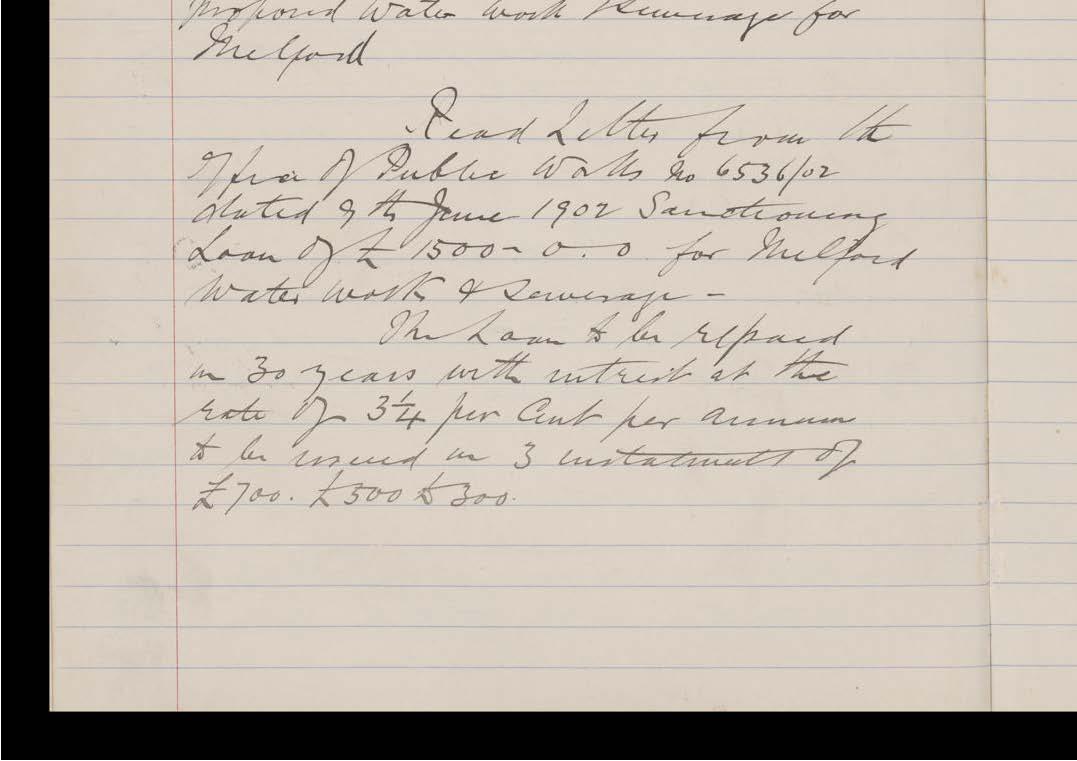 Proposed Water Work & Sewerage for
Milford
Read Letter from the
Office of Public Works No 6536/02
dated 9th June 1902 Sanctioning
Loan of £1500-0.0 for Milford
Water Works & Sewerage -
The Loan to be repaid
in 30 years with intrest at the
rate of 3¼ per Cent per annum
to be issued in 3 instalments of
£700. £500 £300.